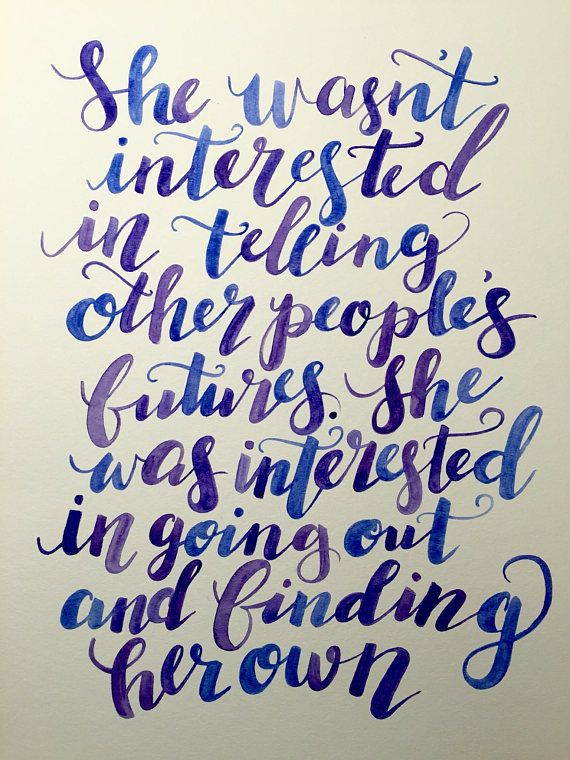 She wasn't
interested
in telling
other people's
futures. She
was interested
in going out
and finding
her own